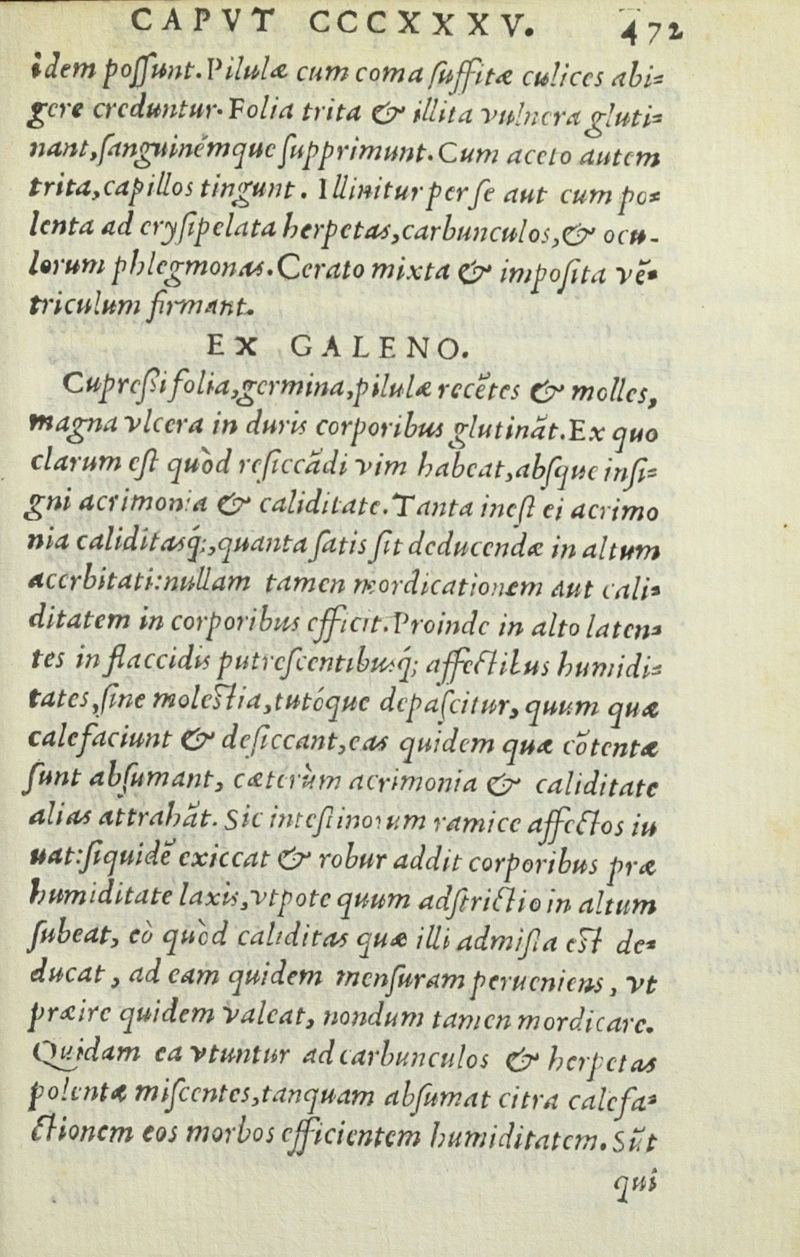 CAPVT CCCXXXV. 472
idem possunt. Pilulæ cum coma suffitæ culices abi=
gere creduntur. Folia trita & illita vulnera gluti=
nant, sanguinémque supprimunt. Cum aceto autem
trita, capillos tingunt. Illinitur per se aut cum po=
lenta ad erysipelata herpetas, carbunculos, & ocu-
lorum phlegmonas. Cerato mixta & imposita vē=
triculum firmant.
EX GALENO.
Cupressi folia, germina, pilulæ recētes & molles,
magna vlcera in duris corporibus glutināt. Ex quo
clarum est quòd resiccādi vim habeat, absque insi=
gni acrimonia & caliditate. Tanta inest ei acrimo
nia caliditasq́;, quanta satis sit deducendæ in altum
acerbitati: nullam tamen mordicationem aut cali=
ditatem in corporibus efficit. Proinde in alto laten=
tes in flaccidis putrescentibusq́; affectibus humidi=
tates, sine molestia, tutóque depascitur, quum quæ
calefaciunt & desiccant, eas quidem quæ cōtentæ
sunt absumant, cæterùm acrimonia & caliditate
alias attrahāt. Sic intestinorum ramice affectos iu
uat: siquidē exiccat & robur addit corporibus præ
humiditate laxis, vtpote quum adstrictio in altum
subeat, eò quòd caliditas quæ illi admista est de=
ducat, ad eam quidem mensuram perueniens, vt
præire quidem valeat, nondum tamen mordicare.
Quidam ea vtuntur ad carbunculos & herpetas
polentæ miscentes, tanquam absumat citra calefa=
ctionem eos morbos efficientem humiditatem. Sūt
qui